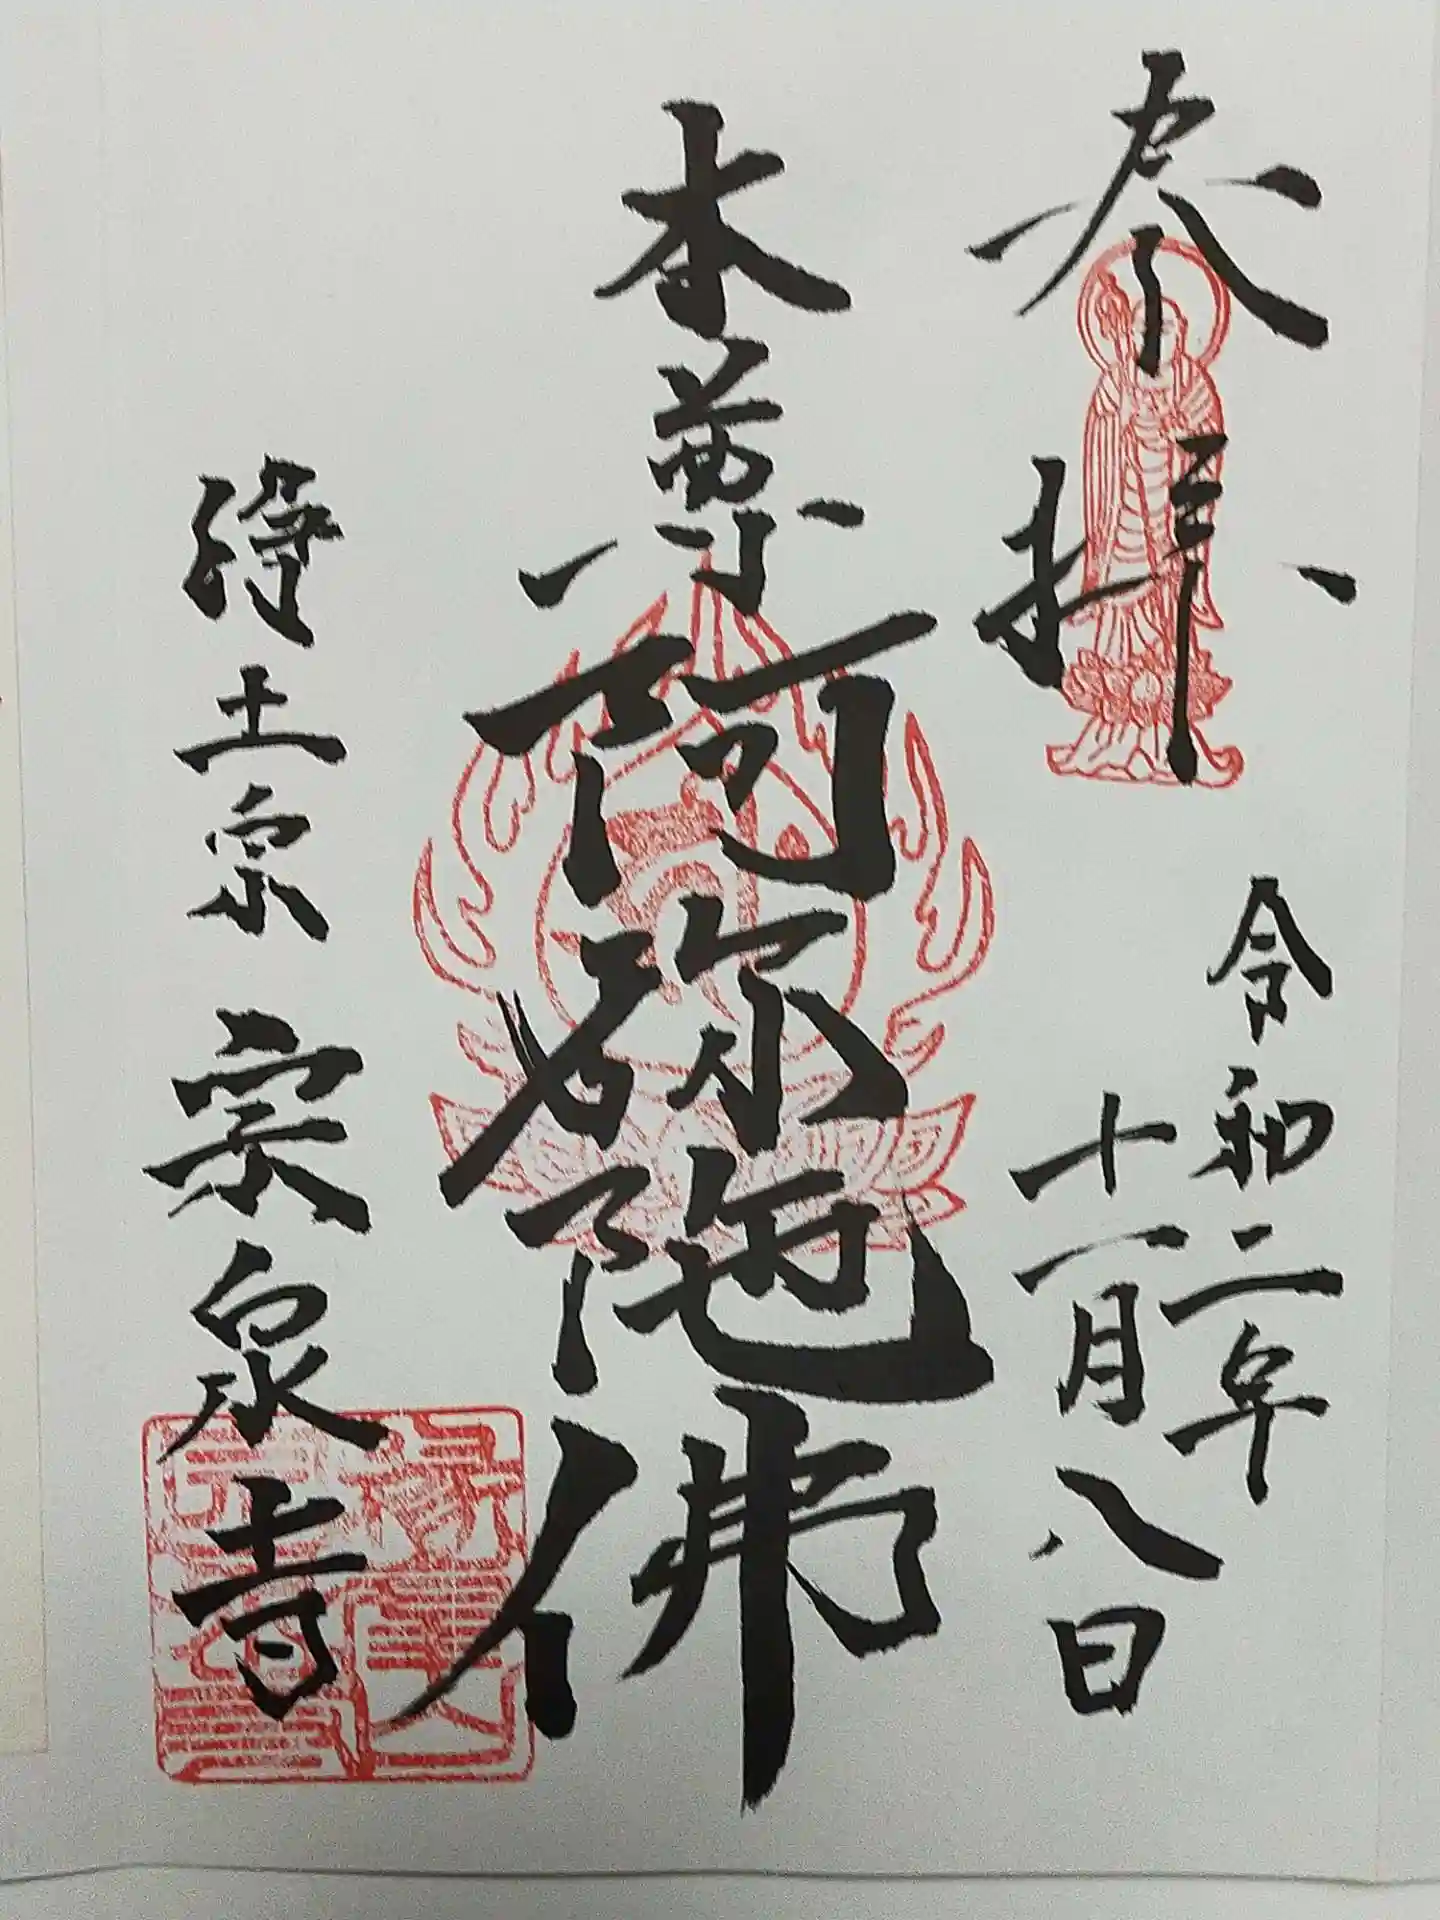 奉拝
令和二年
十一月八日
本尊
阿弥陀佛
浄土宗
宗泉寺